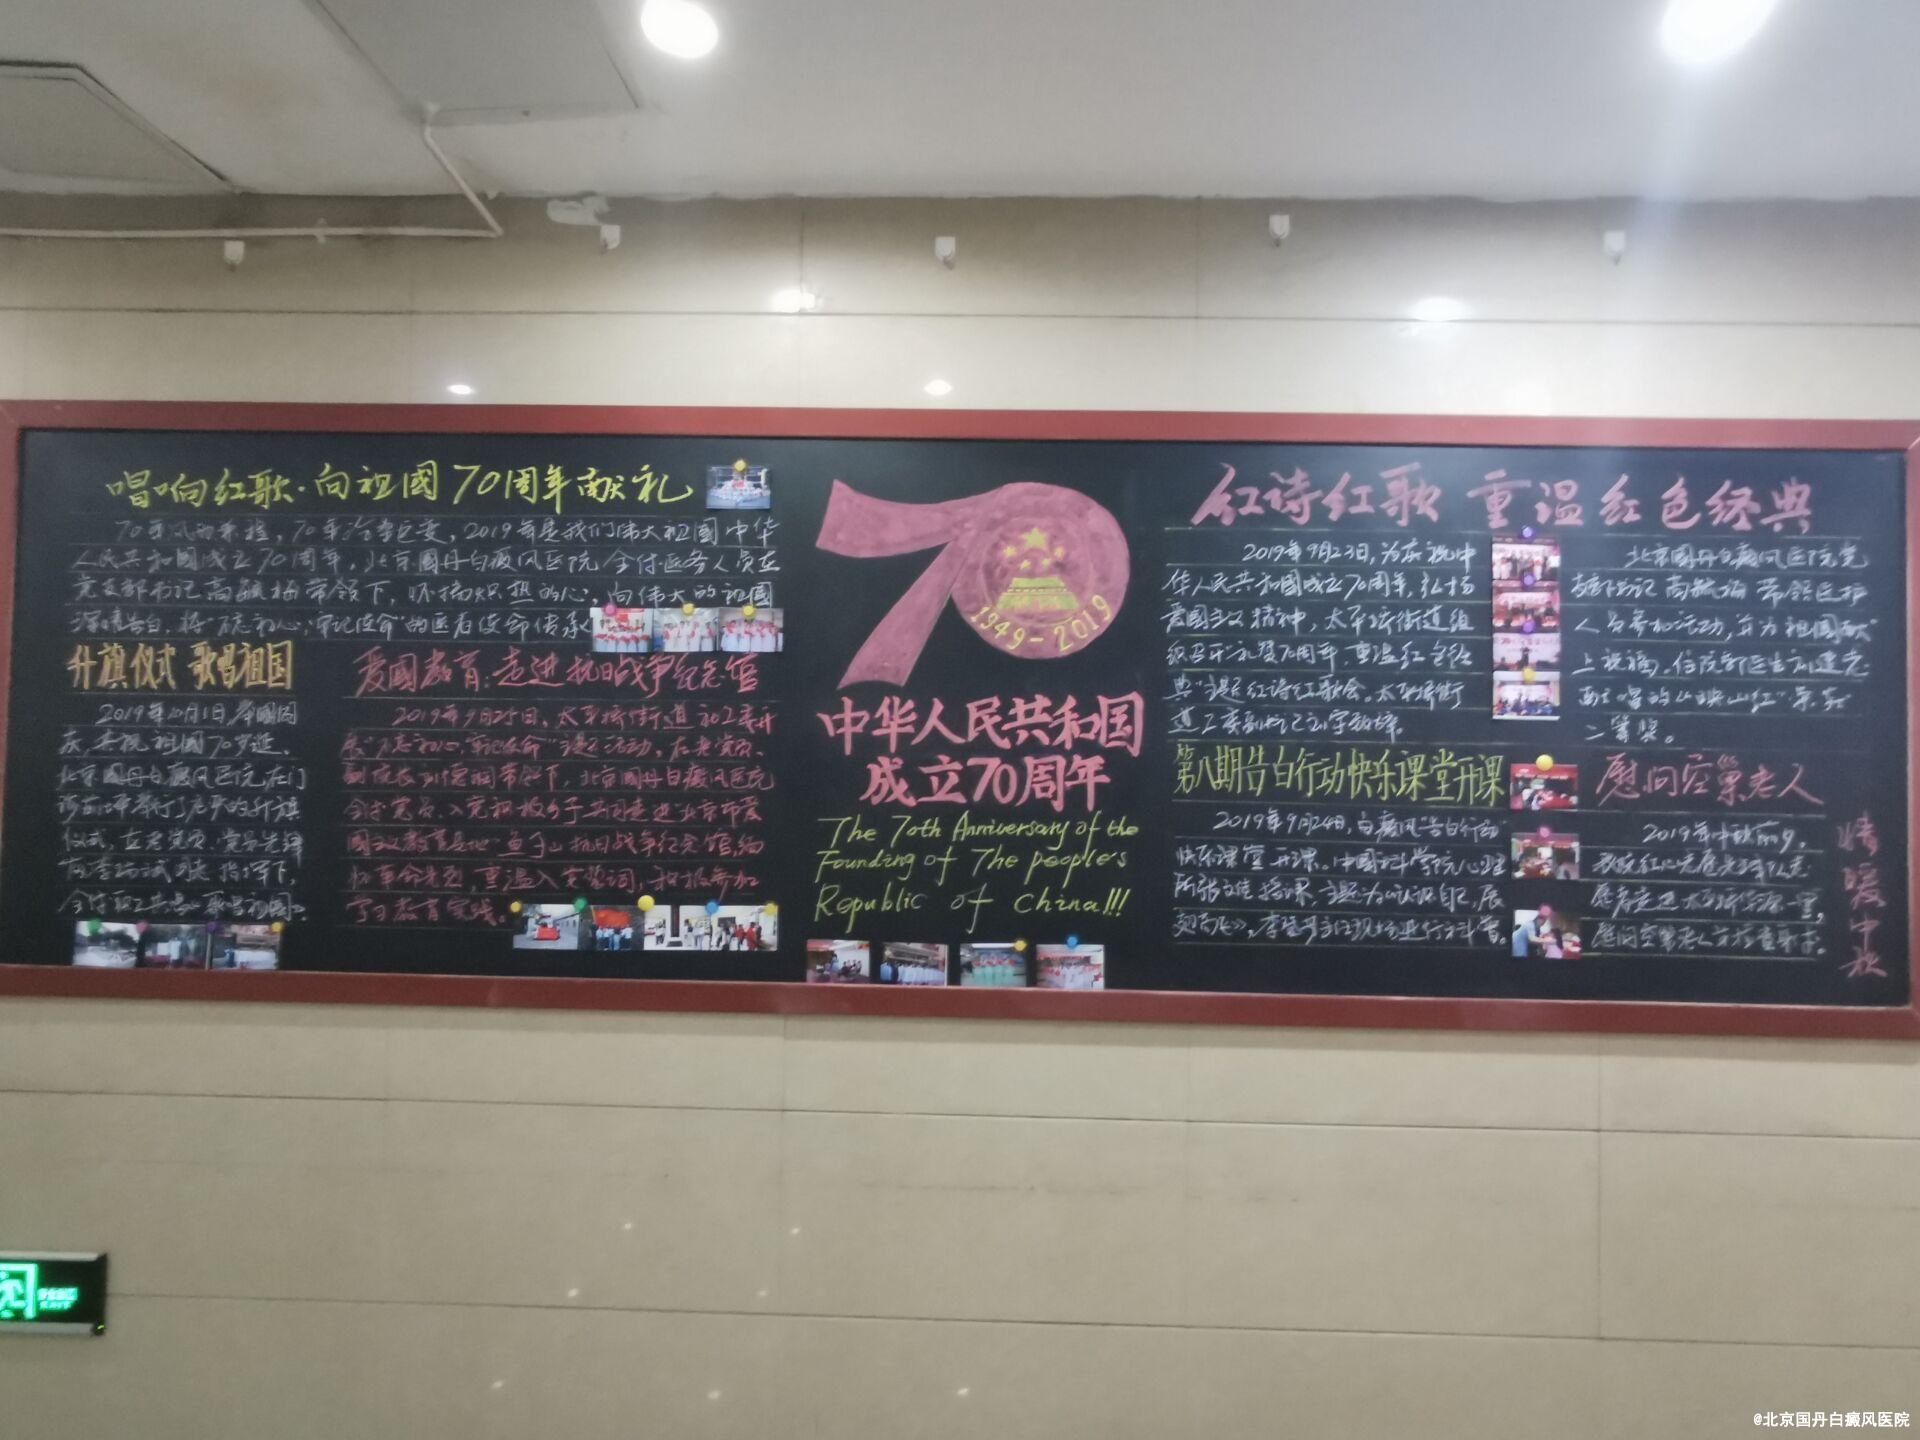 唱响红歌·向祖國70周年献礼
70年风雨来程，70年沧桑巨变，2019年是我们伟大祖國中华
人民共和國成立70周年，北京國丹白癜风医院全体医务人员在
党支部书记高毓梅带领下，怀揣炽热的心，向伟大的祖国
深情告白，将"不忘初心，牢记使命"的医者使命传承
升旗仪式 歌唱祖国
2019年10月1日，举國同
庆，共祝祖國70岁诞、
北京國丹白癜风医院在门
诊前坪举行了庄严的升旗
仪式，在老党员、党员先锋
指挥下，
全体职工共唱《歌唱祖国》
爱國教育：走进抗日战争纪念馆
2019年9月25日，太平桥街道和工委开
展"不忘初心，牢记使命"主题活动，在老党员、
带领下，北京國丹白癜风医院
全体党员、入党积极分子共同走进北京市爱
國主义教育基地"鱼子山抗日战争纪念馆，缅
怀革命先烈，重温入党誓词，积极参加
学习教育实践。
1949-2019
中华人民共和国
成立70周年
The 70th Anniversary of the
Founding of The people's
Republic of China!!!
红诗红歌 重温红色经典
2019年9月23日，为庆祝中
华人民共和國成立70周年，弘扬
爱國主义精神，太平桥街道组
织召开"礼赞70周年，重温红色经
典"主题红诗红歌会。太平桥街
道工委副书记致辞。
北京國丹白癜风医院党
支部书记高毓梅带领医护
人员参加活动，并为祖國献
上祝福。住院部医生
演唱的《映山红》荣获
二等奖。
第八期告白行动快乐课堂开课
2019年9月24日，白癜风"告白行动"
快乐课堂开课。中國科学院心理
所张文佳授课，主题为《认识自己，展
翅高飞》，主任现场进行科普。
慰问空巢老人
2019年中秋前夕，
我院红心党徽先锋队志
愿者走进太平桥
慰问空巢老人并检查身体。
情暖中秋
@北京国丹白癜风医院